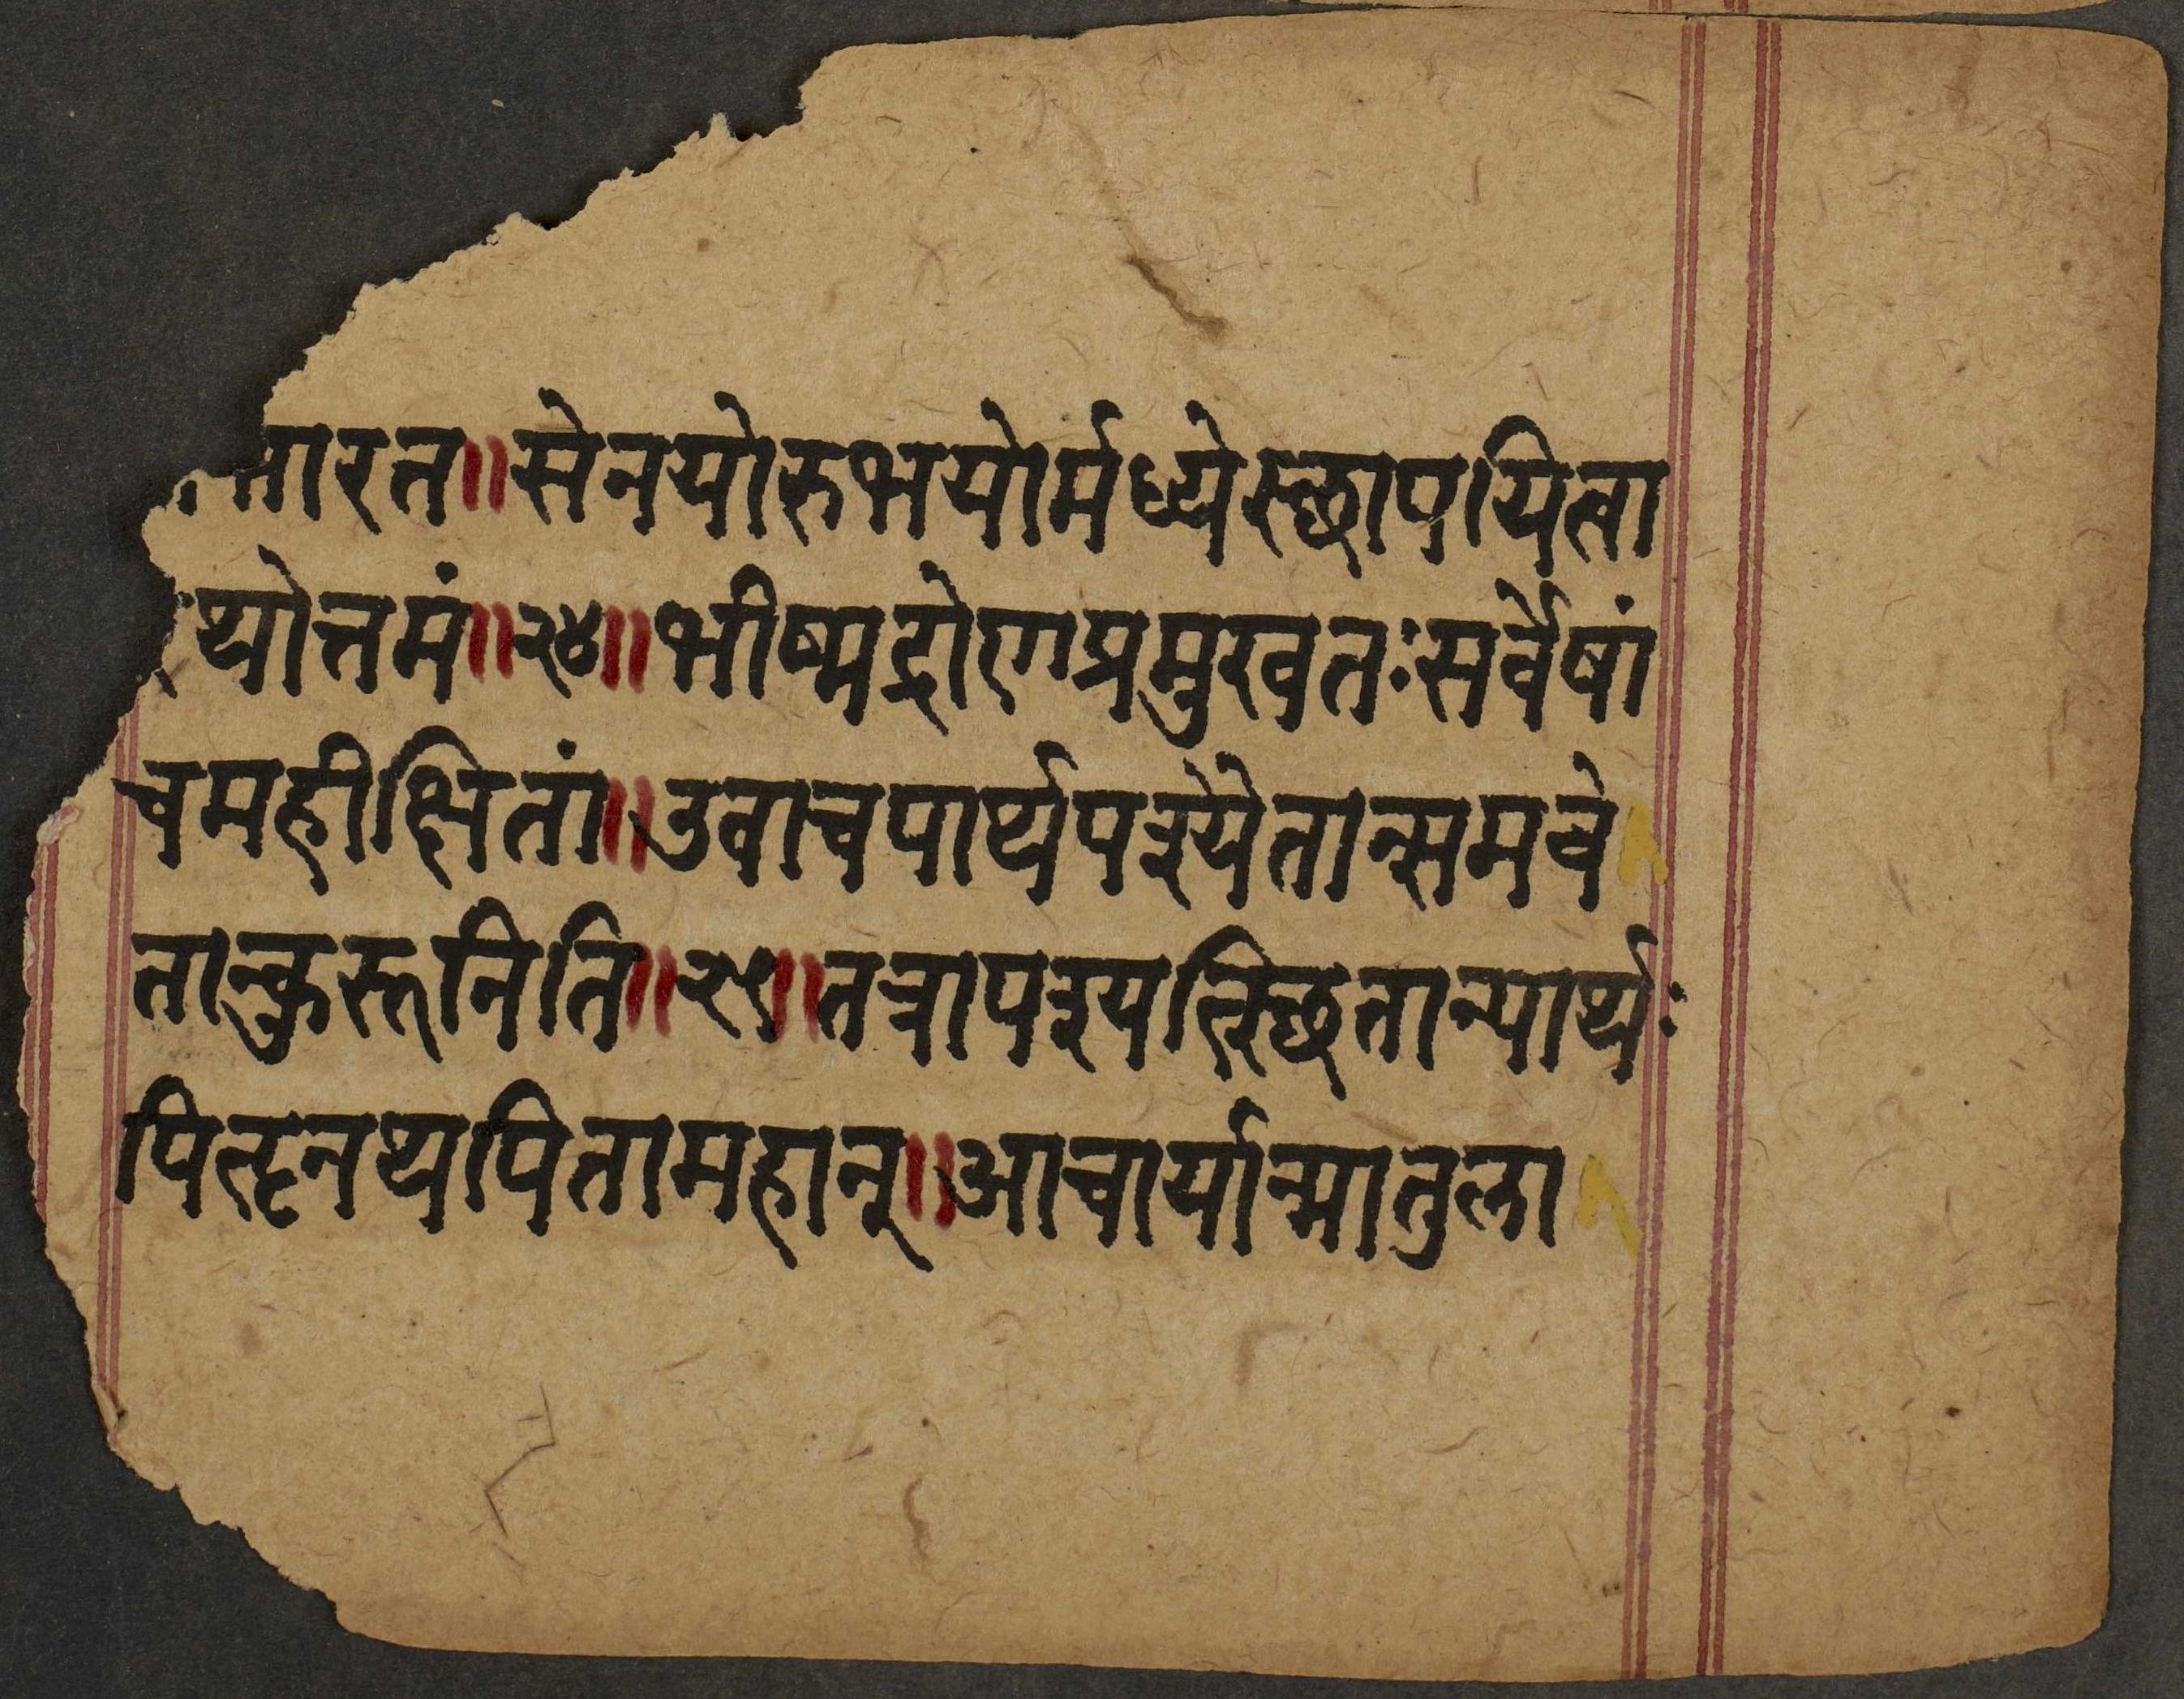 भारत॥सेनयोरुभयोर्मध्येस्छापयित्वा
थोत्तमं॥२४॥भीष्मद्रोणप्रमुखतःसर्वेषां
चमहीक्षितां॥उवाचपार्थपश्यैतान्समवे
तान्कुरूनिति॥२५॥तत्रापश्यत्स्छितान्पार्थः
पितॄनथपितामहान्॥आचार्यान्मातुला